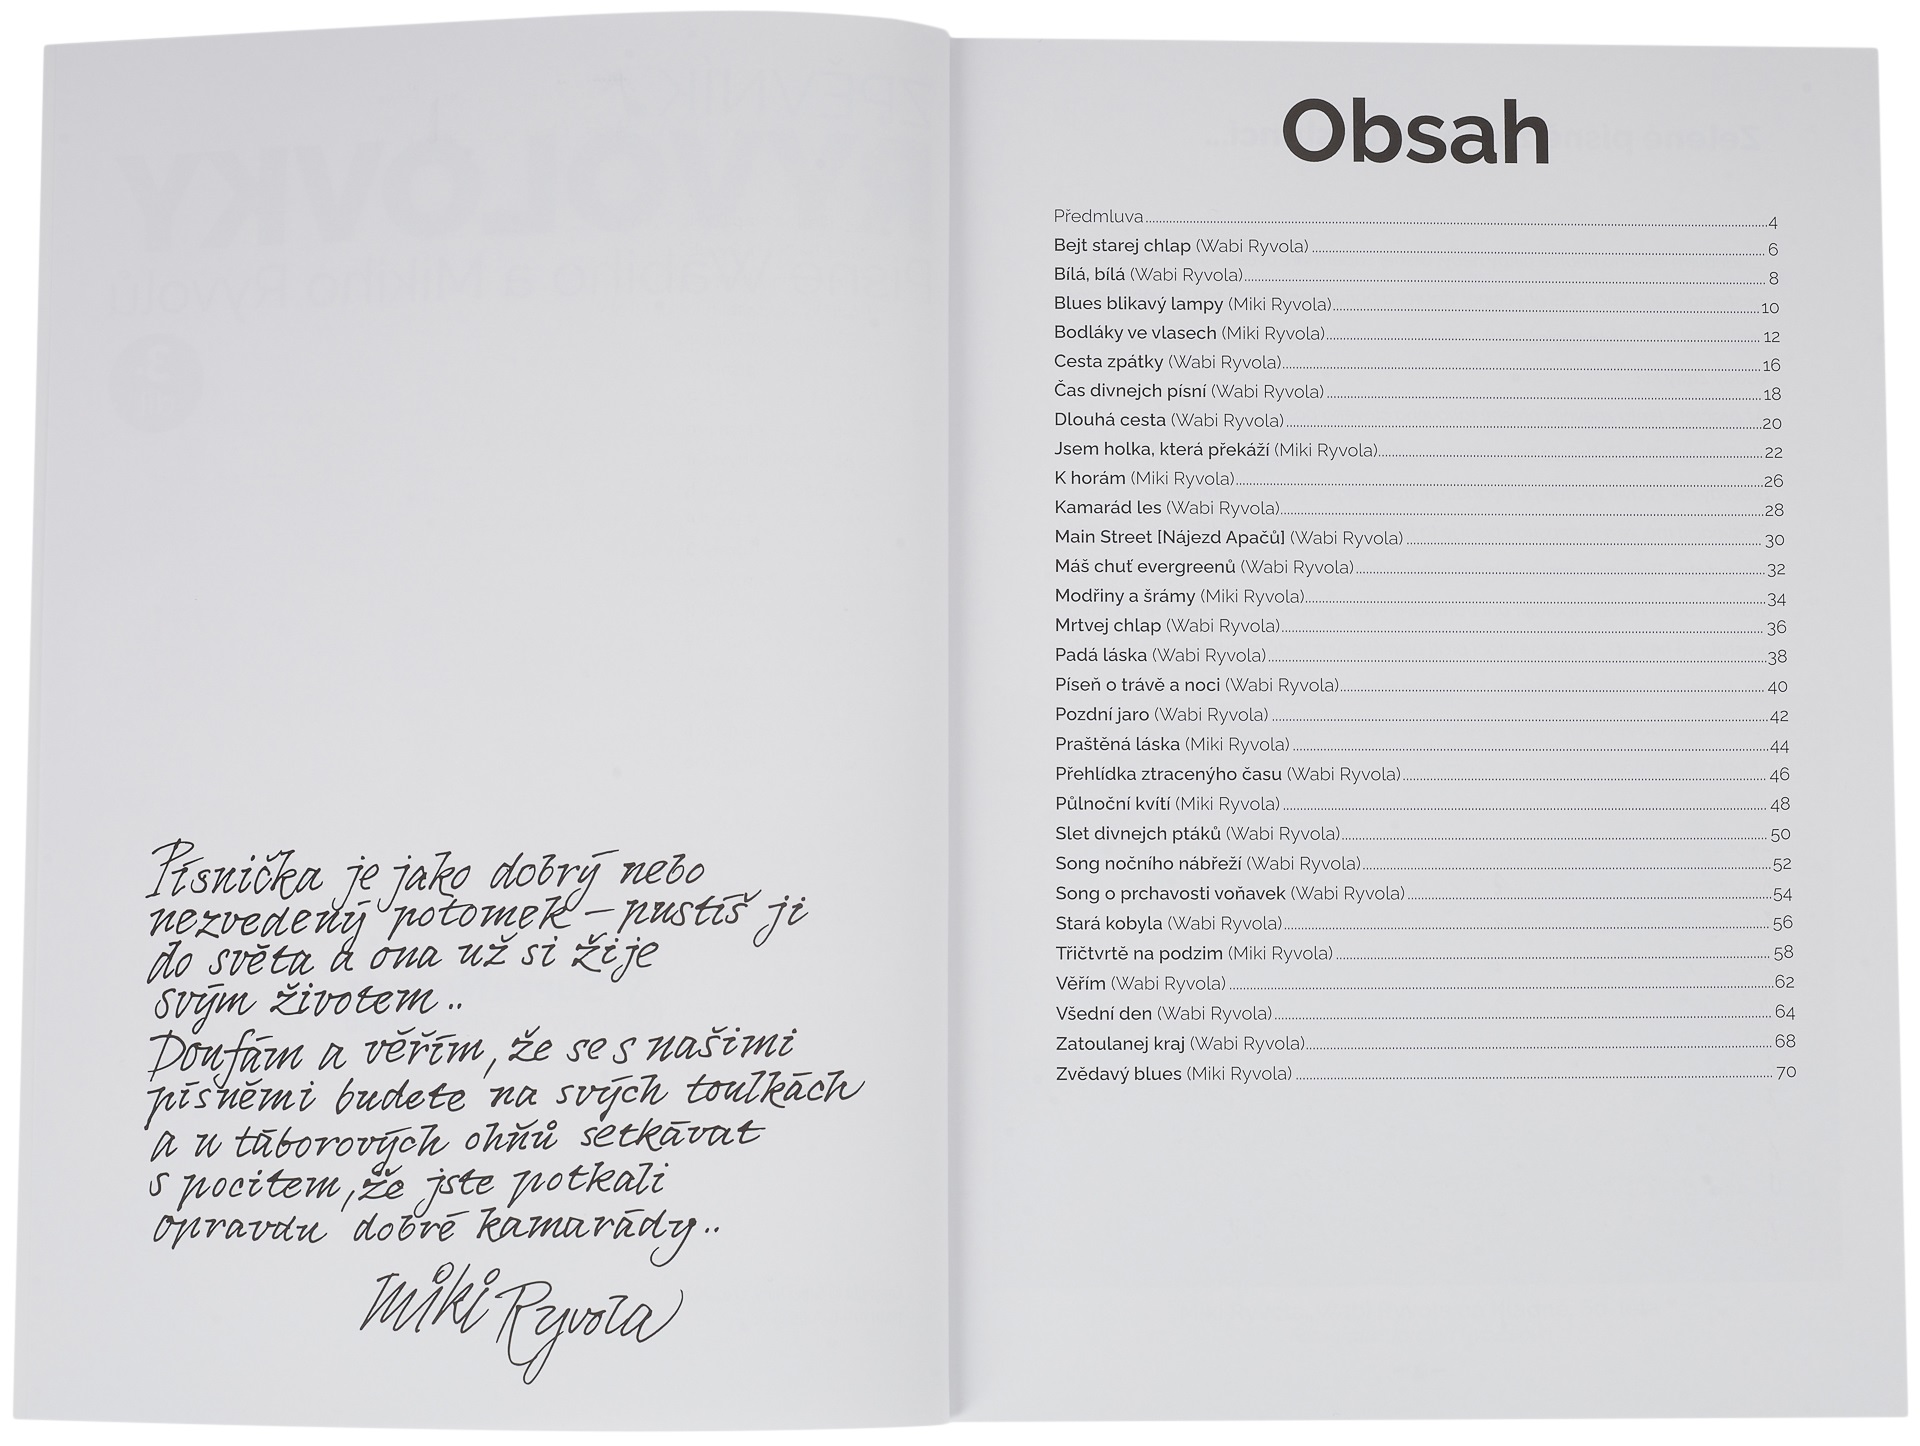 Písnička je jako dobrý nebo
nezvedený potomek – pustíš ji
do světa a ona už si žije
svým životem..
Doufám a věřím, že se s našimi
písněmi budete na svých toulkách
a u táborových ohňů setkávat
s pocitem, že jste potkali
opravdu dobré kamarády..
Miki Ryvola
Obsah
Předmluva 4
Bejt starej chlap (Wabi Ryvola) 6
Bílá, bílá (Wabi Ryvola) 8
Blues blikavý lampy (Miki Ryvola) 10
Bodláky ve vlasech (Miki Ryvola) 12
Cesta zpátky (Wabi Ryvola) 16
Čas divnejch písní (Wabi Ryvola) 18
Dlouhá cesta (Wabi Ryvola) 20
Jsem holka, která překáží (Miki Ryvola) 22
K horám (Miki Ryvola) 26
Kamarád les (Wabi Ryvola) 28
Main Street [Nájezd Apačů] (Wabi Ryvola) 30
Máš chuť evergreenů (Wabi Ryvola) 32
Modřiny a šrámy (Miki Ryvola) 34
Mrtvej chlap (Wabi Ryvola) 36
Padá láska (Wabi Ryvola) 38
Píseň o trávě a noci (Wabi Ryvola) 40
Pozdní jaro (Wabi Ryvola) 42
Praštěná láska (Miki Ryvola) 44
Přehlídka ztracenýho času (Wabi Ryvola) 46
Půlnoční kvítí (Miki Ryvola) 48
Slet divnejch ptáků (Wabi Ryvola) 50
Song nočního nábřeží (Wabi Ryvola) 52
Song o prchavosti voňavek (Wabi Ryvola) 54
Stará kobyla (Wabi Ryvola) 56
Třičtvrtě na podzim (Miki Ryvola) 58
Věřím (Wabi Ryvola) 62
Všední den (Wabi Ryvola) 64
Zatoulanej kraj (Wabi Ryvola) 68
Zvědavý blues (Miki Ryvola) 70